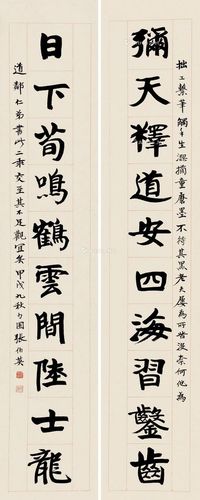 彌天釋道安四海習鑿齒
拙工繫筆觸手生澀摘童磨墨不待其黑老夫屢為所苦沒奈何他為
日下荀鳴鶴雲間陸士龍
道鄰仁弟書此二者交至其不足觀宜矣甲戌九秋勺圃張伯英